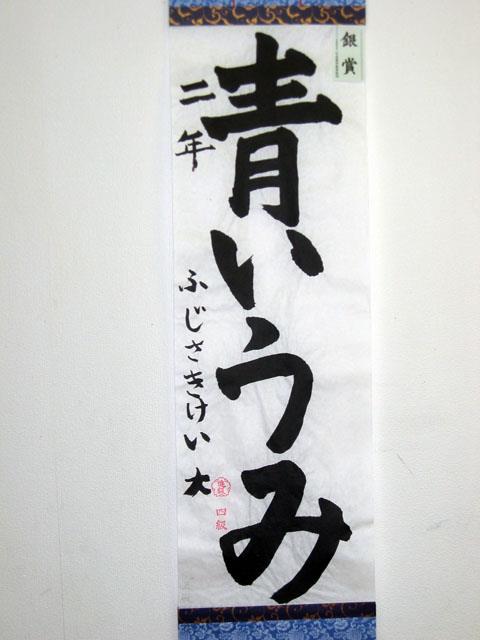 銀賞
青いうみ
二年
ふじさきけい大
四級